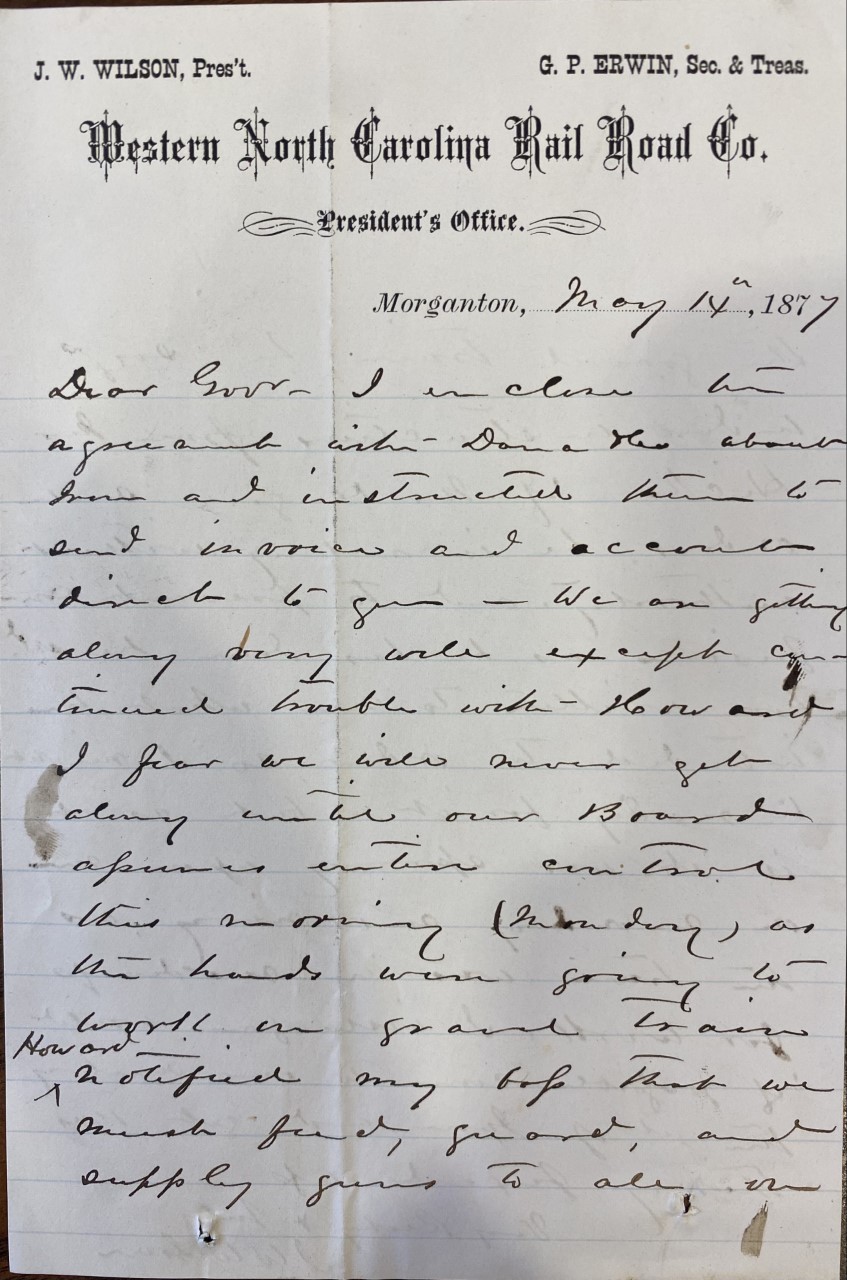 J. W. WILSON, Pres't.
G. P. ERWIN, Sec. & Treas.
Western North Carolina Rail Road Co.
President's Office.
Morganton, May 14th, 1877
Dear Govr - I enclose the
agreement with Dana & Co about
Iron and instructed them to
send invoice and account
direct to you — We are getting
along very well except con-
tinued trouble with Howard
I fear we will never get
along until our Board
assumes entire control
this morning (Monday) as
the hands were going to
work on gravel train
Howard
notified my boss that we
must feed, guard, and
supply guns to all, on